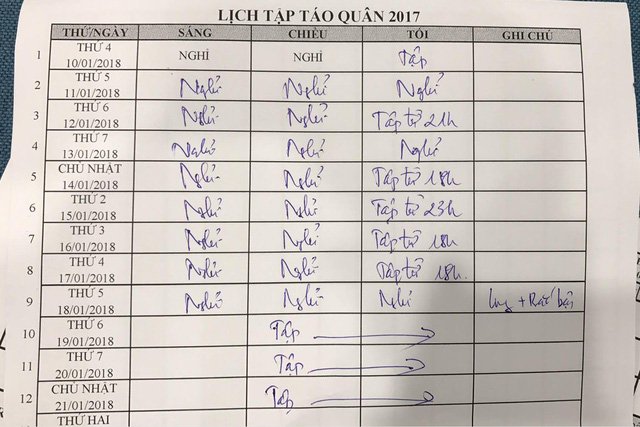 LỊCH TẬP TÁO QUÂN 2017
THỨ/NGÀY SÁNG CHIỀU TỐI GHI CHÚ
1 THỨ 4 10/01/2018 NGHỈ NGHỈ Tập
2 THỨ 5 11/01/2018 Nghỉ Nghỉ Nghỉ
3 THỨ 6 12/01/2018 Nghỉ Nghỉ Tập từ 21h
4 THỨ 7 13/01/2018 Nghỉ Nghỉ Nghỉ
5 CHỦ NHẬT 14/01/2018 Nghỉ Nghỉ Tập từ 18h
6 THỨ 2 15/01/2018 Nghỉ Nghỉ Tập từ 23h
7 THỨ 3 16/01/2018 Nghỉ Nghỉ Tập từ 18h
8 THỨ 4 17/01/2018 Nghỉ Nghỉ Tập từ 18h.
9 THỨ 5 18/01/2018 Nghỉ Nghỉ Nghỉ
10 THỨ 6 19/01/2018 Tập
11 THỨ 7 20/01/2018 Tập
12 CHỦ NHẬT 21/01/2018 Tập
THỨ HAI